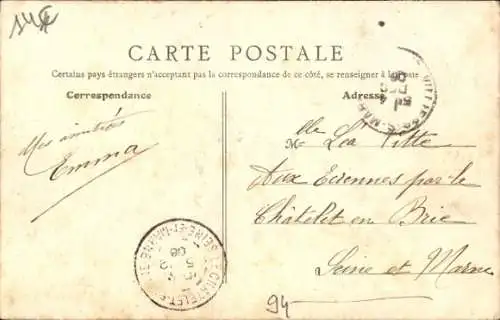 14€
CARTE POSTALE
Certains pays étrangers n'acceptant pas la correspondance de ce côté, se renseigner à la poste
Correspondance
Adresse
Mes amitiés
Emma
Mlle Léa Vitte
Aux Eciennes par le
Châtelet en Brie
Seine et Marne
LE CHATELET
SEINE-ET-MARNE
94